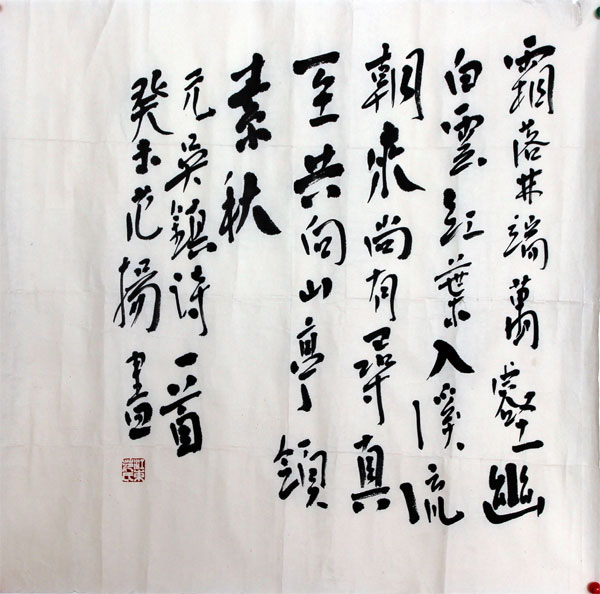 霜落林端萬壑幽
白雲紅葉入溪流
朝來尚有尋真
至共向山亭領
素秋
元吳鎮诗一首
癸未范揚畫
江東范氏